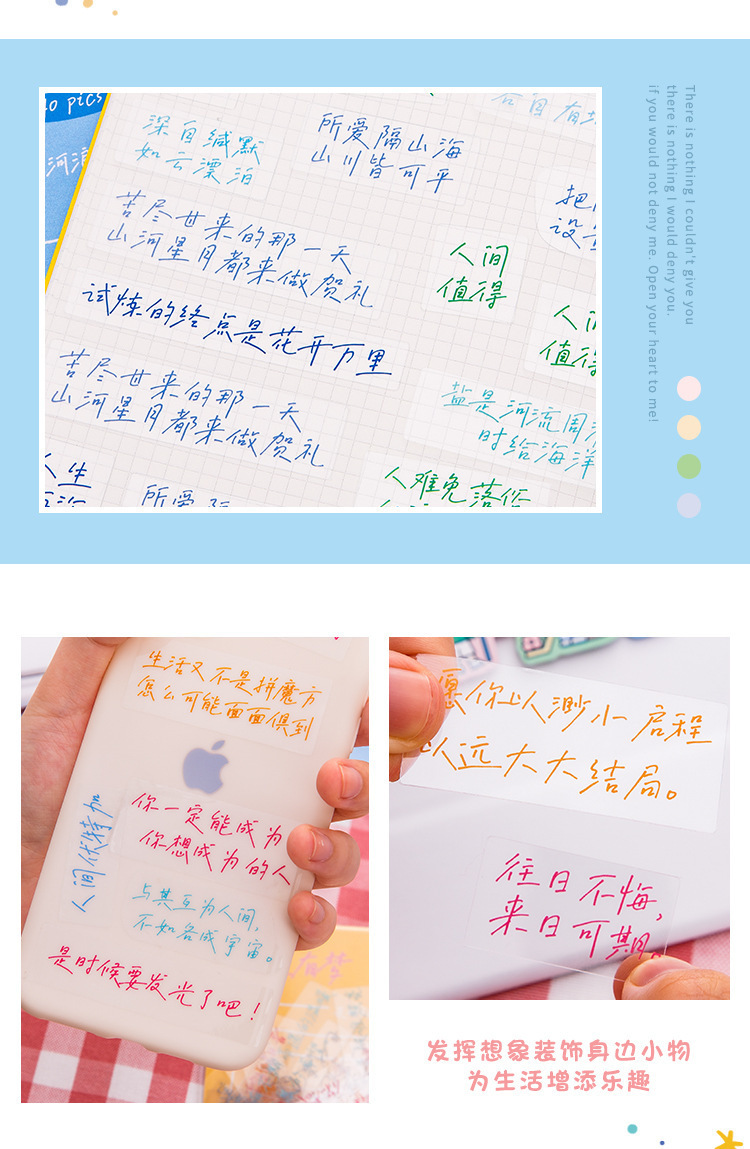 40 pics
河浪
深自缄默
如云漂泊
所爱隔山海
山川皆可平
苦尽甘来的那一天
山河星月都来做贺礼
人间
值得
试炼的终点是花开万里
值得
苦尽甘来的那一天
山河星月都来做贺礼
盐是河流周
时给海洋
人生
所爱隔
人难免落俗
There is nothing I couldn't give you
there is nothing I would deny you.
if you would not deny me. Open your heart to me!
生活又不是拼魔方
怎么可能面面俱到
你一定能成为
你想成为的人
人间伏特加
与其互为人间,
不如各成宇宙。
是时候要发光了吧!
愿你以渺小启程
以远大大结局。
往日不悔,
来日可期。
发挥想象装饰身边小物
为生活增添乐趣